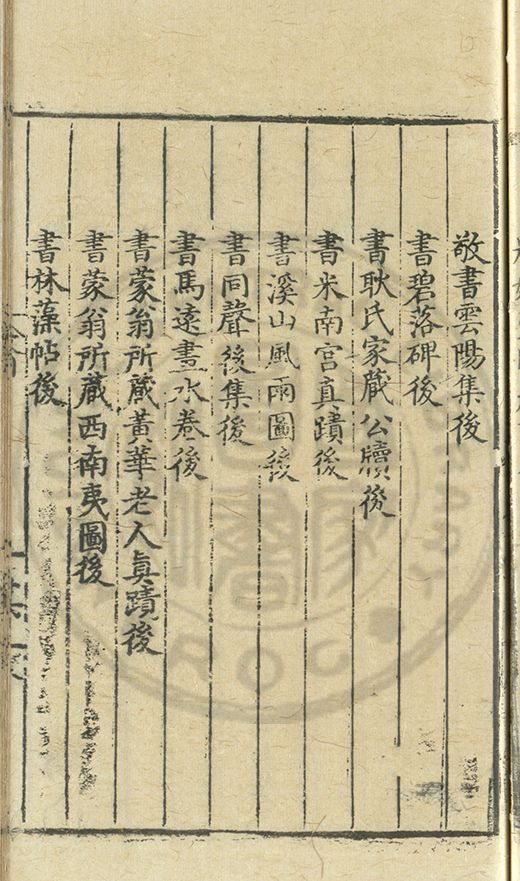 敬書雲陽集後
書碧落碑後
書耿氏家蔵公牘後
書米南宮真蹟後
書溪山風雨圖後
書同聲後集後
書馬逺畫水卷後
書蒙翁所蔵黃華老人真蹟後
書蒙翁所蔵西南夷圖後
書林藻帖後